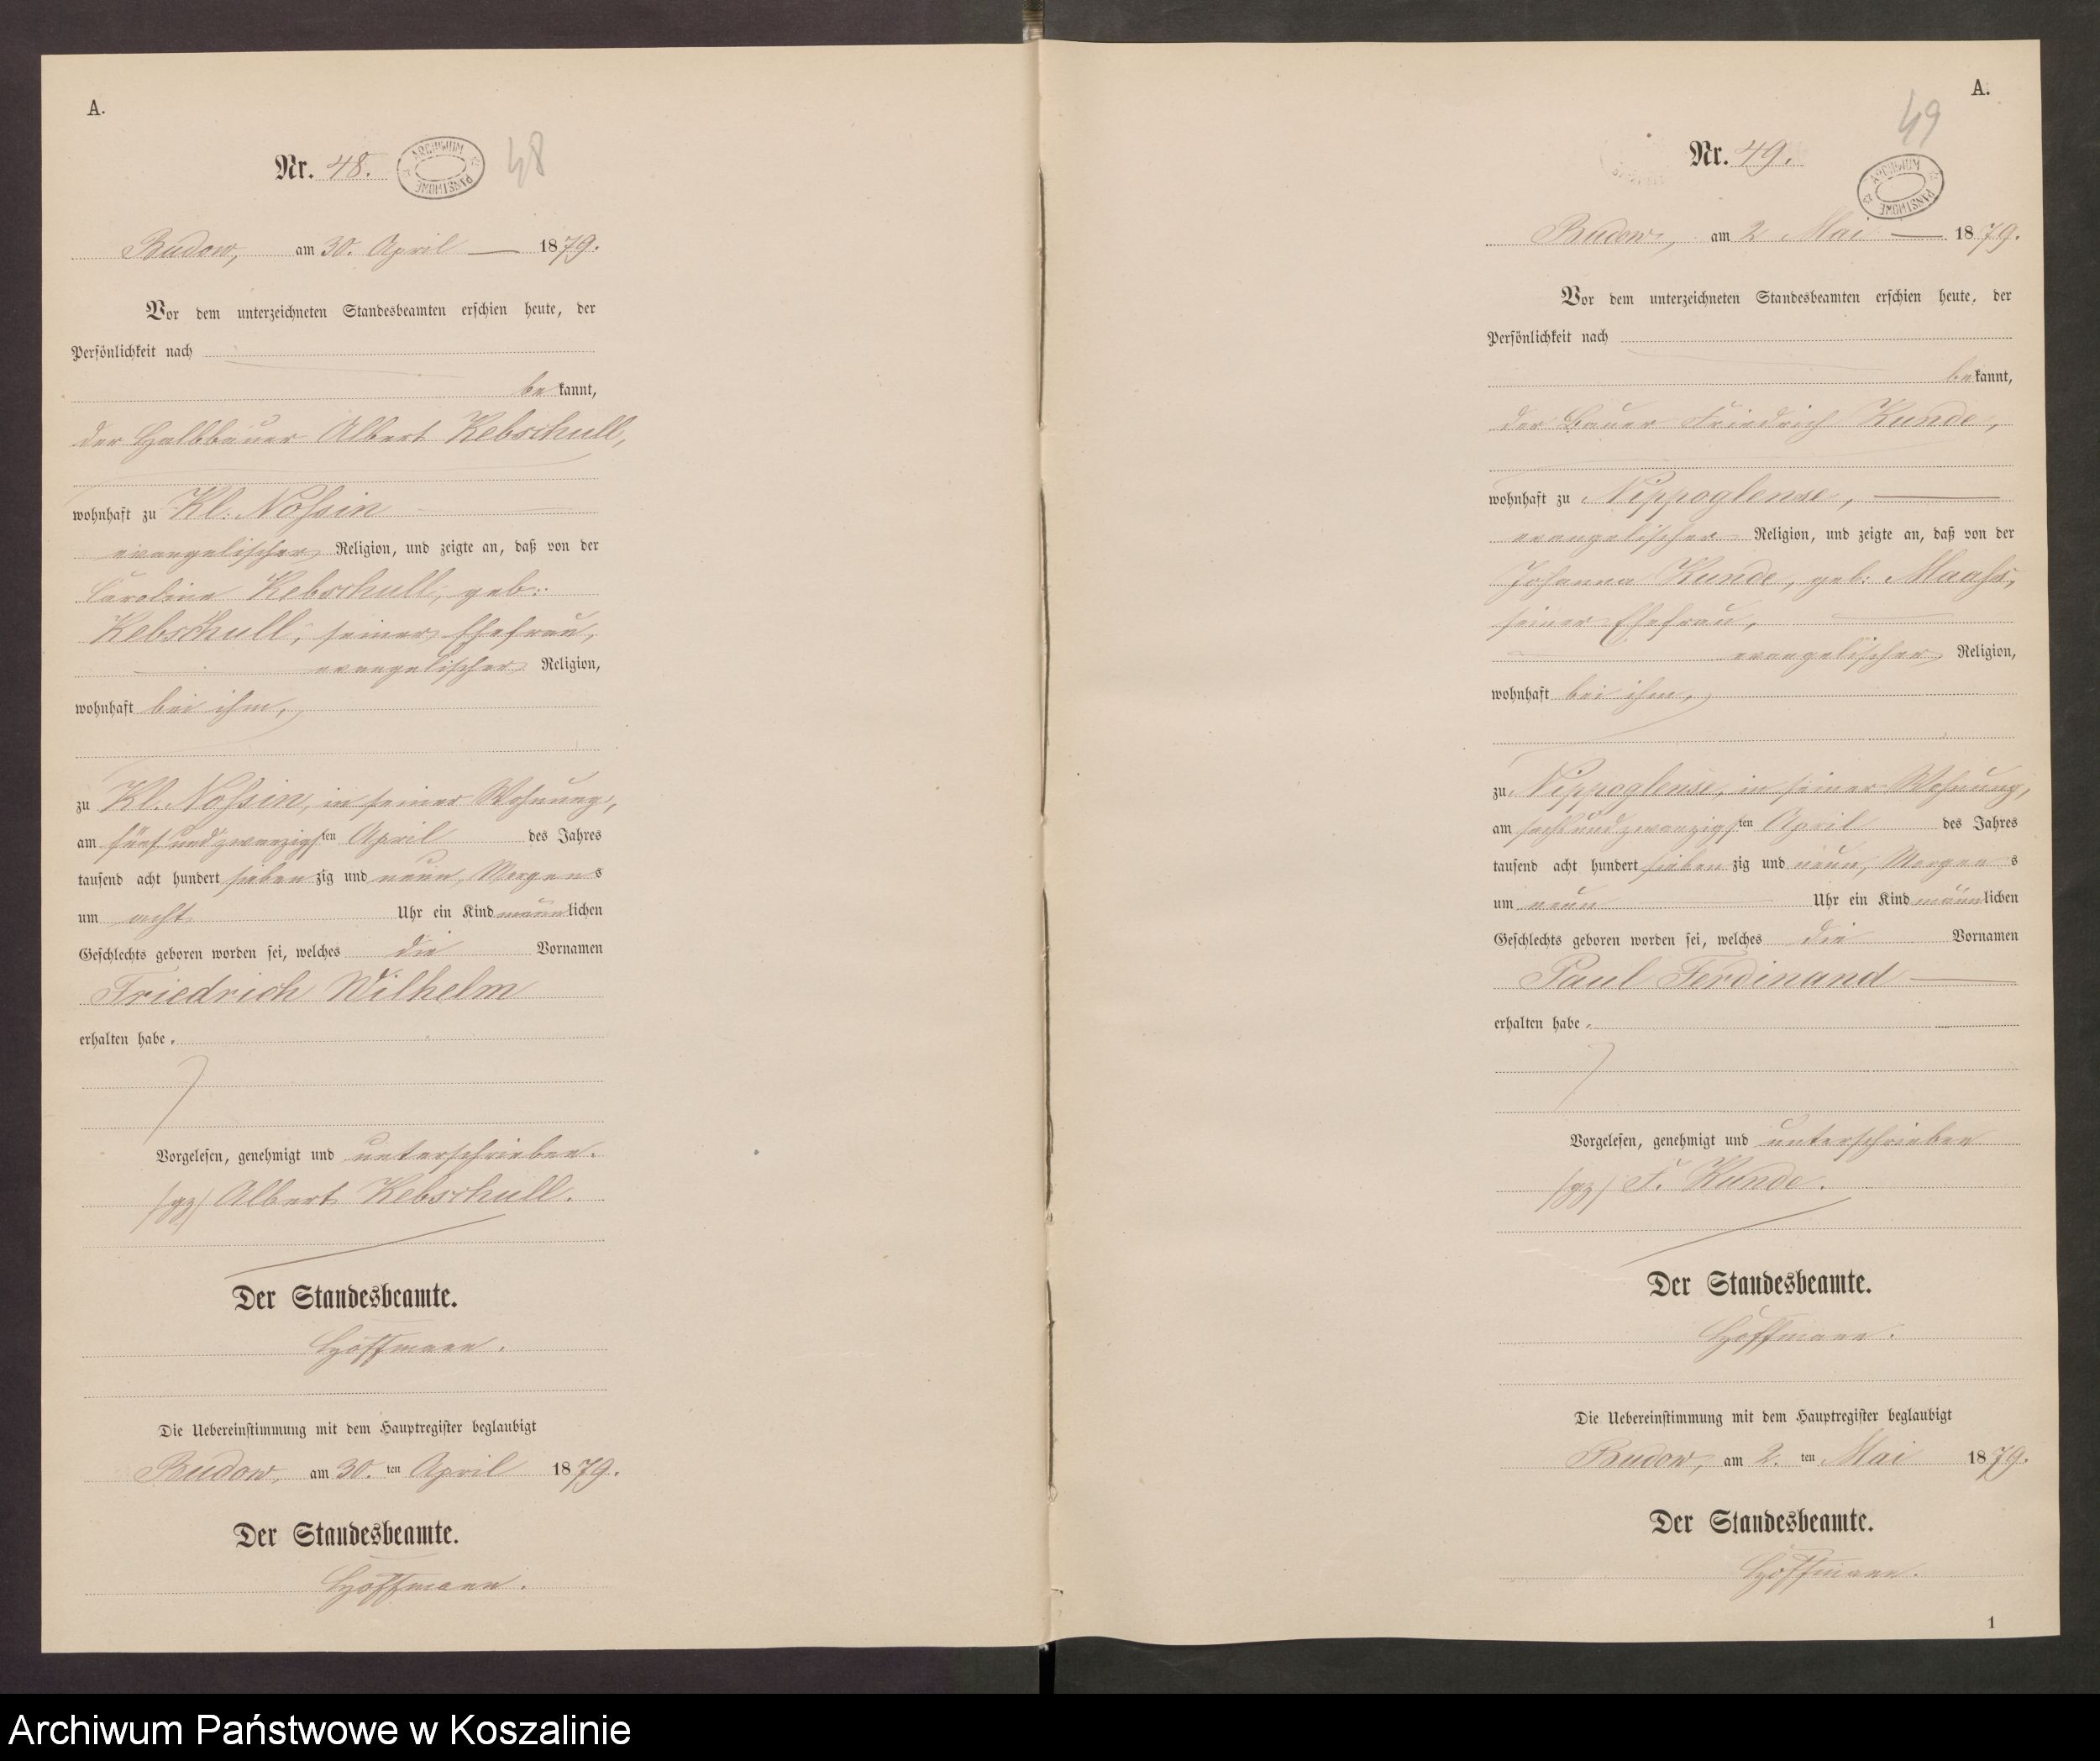 A.
Nr. 48.
ARCHIWUM PAŃSTWOWE
48
Budow, am 30. April 1879.
Vor dem unterzeichneten Standesbeamten erschien heute, der
Persönlichkeit nach
bekannt,
der Halbbauer Albert Kebschull,
wohnhaft zu Kl. Nossin
evangelischer Religion, und zeigte an, daß von der
Caroline Kebschull, geb:
Kebschull, seiner Ehefrau,
evangelischer Religion,
wohnhaft bei ihm,
zu Kl. Nossin, in seiner Wohnung,
am fünf und zwanzigsten April des Jahres
tausend acht hundert siebenzig und neun, Morgens
um acht Uhr ein Kind männlichen
Geschlechts geboren worden sei, welches die Vornamen
Friedrich Wilhelm
erhalten habe.
Vorgelesen, genehmigt und unterschrieben.
/gz/ Albert Kebschull.
Der Standesbeamte.
Hoffmann.
Die Uebereinstimmung mit dem Hauptregister beglaubigt
Budow, am 30. ten April 1879.
Der Standesbeamte.
Hoffmann.
A.
49
Nr. 49.
ARCHIWUM PAŃSTWOWE
Budow, am 2 Mai 1879.
Vor dem unterzeichneten Standesbeamten erschien heute, der
Persönlichkeit nach
bekannt,
der Bauer Friedrich Kunde,
wohnhaft zu Nippoglense,
evangelischer Religion, und zeigte an, daß von der
Johanna Kunde, geb: Maahs,
seiner Ehefrau,
evangelischer Religion,
wohnhaft bei ihm,
zu Nippoglense, in seiner Wohnung,
am sechs und zwanzigsten April des Jahres
tausend acht hundert siebenzig und neun, Morgens
um neun Uhr ein Kind männlichen
Geschlechts geboren worden sei, welches die Vornamen
Paul Ferdinand
erhalten habe.
Vorgelesen, genehmigt und unterschrieben
/gz/ F. Kunde.
Der Standesbeamte.
Hoffmann.
Die Uebereinstimmung mit dem Hauptregister beglaubigt
Budow, am 2. ten Mai 1879.
Der Standesbeamte.
Hoffmann.
1
Archiwum Państwowe w Koszalinie